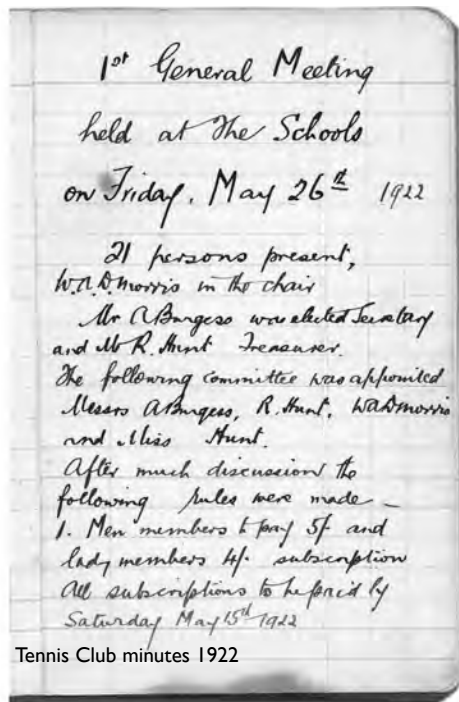 1st General Meeting
held at The Schools
on Friday, May 26th 1922
21 persons present,
W.A.D. Morris in the chair
Mr A Burgess was elected Secretary
and Mr R. Hunt Treasurer.
The following committee was appointed
Messrs A Burgess, R. Hunt, WADMorris
and Miss Hunt.
After much discussion the
following rules were made –
1. Men members to pay 5/- and
lady members 4/- subscription
All subscriptions to be paid by
Saturday May 15th 1922
Tennis Club minutes 1922